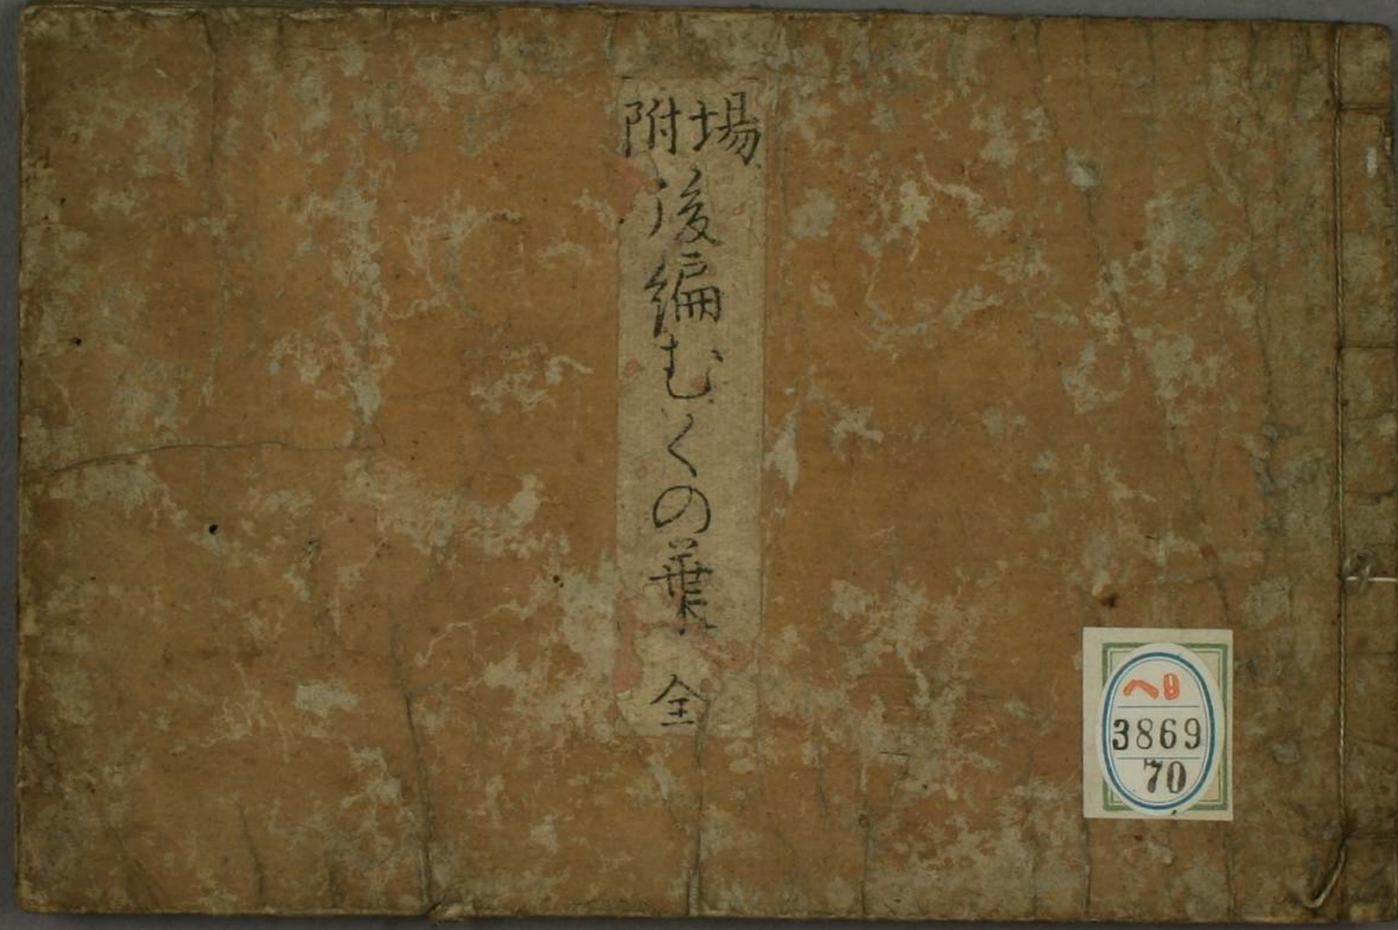 場附
後編むくの葉 全
ヘ9
3869
70